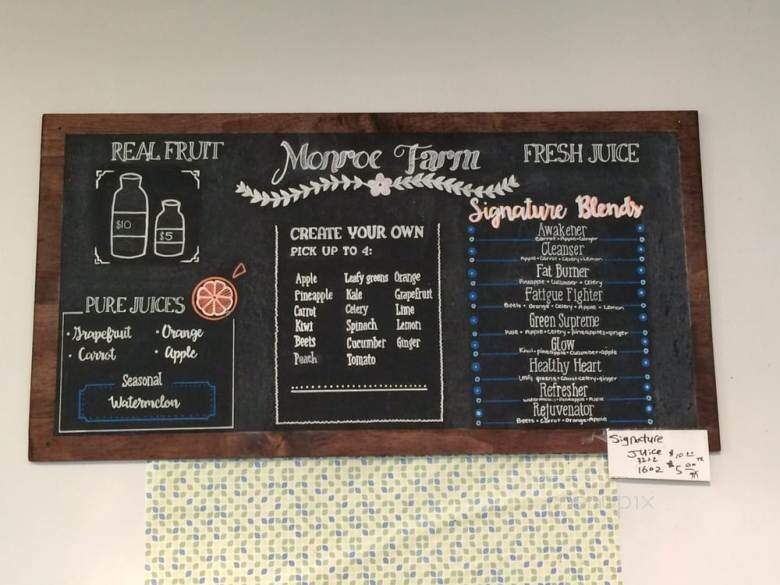 REAL FRUIT
Monroe Farm
FRESH JUICE
$10
$5
PURE JUICES
• Grapefruit • Orange
• Carrot • Apple
Seasonal
Watermelon
CREATE YOUR OWN
PICK UP TO 4:
Apple Leafy greens Orange
Pineapple Kale Grapefruit
Carrot Celery Lime
Kiwi Spinach Lemon
Beets Cucumber Ginger
Peach Tomato
Signature Blends
Awakener
Carrot • Apple • Ginger
Cleanser
Apple • Carrot • Celery • Lemon
Fat Burner
Pineapple • Cucumber • Celery
Fatigue Fighter
Beets • Orange • Celery • Apple • Lemon
Green Supreme
Kale • Apple • Celery • Pineapple • Ginger
Glow
Kiwi • Pineapple • Cucumber • Apple
Healthy Heart
Leafy greens • Carrot • Celery • Ginger
Refresher
Watermelon • Pineapple •
Rejuvenator
Beets • Carrot • Orange • Apple
Signature
Juice
32oz $10
16oz $5.00